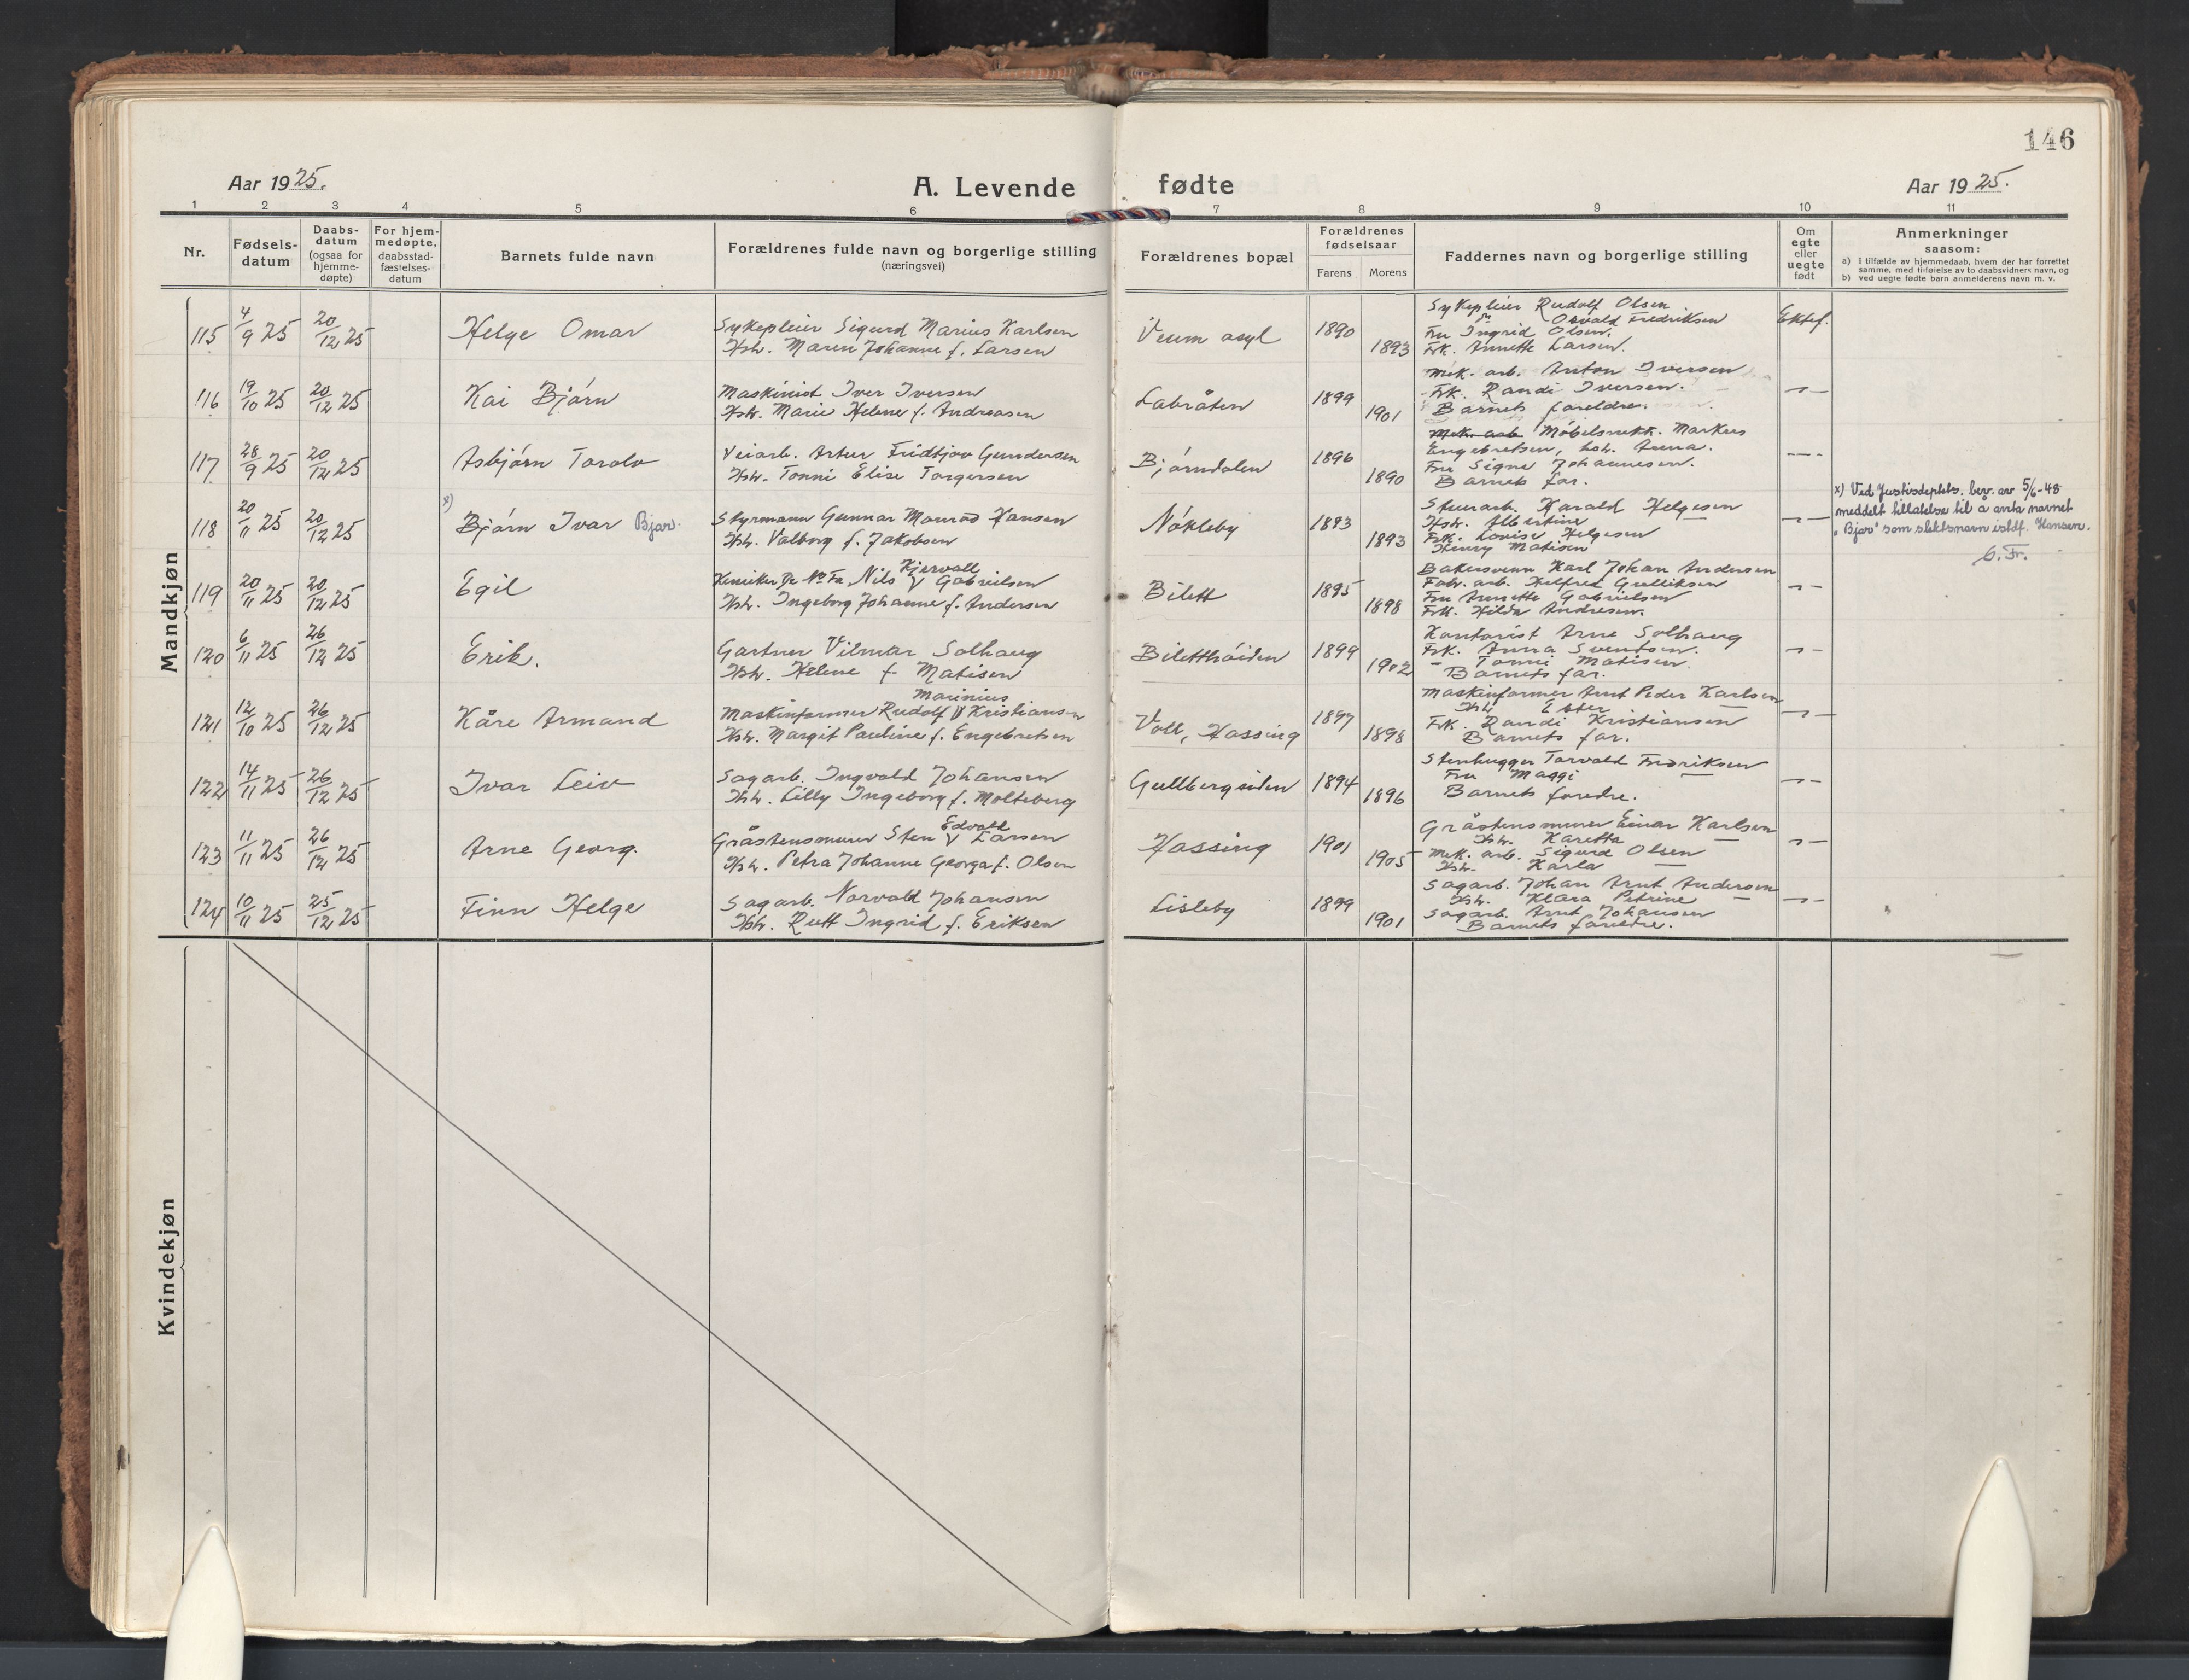 146
Aar 1925.
A. Levende fødte
Aar 1925.
1 2 3 4 5 6 7 8 9 10 11
Nr.
Fødsels-
datum
Daabs-
datum
(ogsaa for
hjemme-
døpte)
For hjem-
medøpte,
daabsstad-
fæstelses-
datum
Barnets fulde navn
Forældrenes fulde navn og borgerlige stilling
(næringsvei)
Forældrenes bopæl
Forældrenes
fødselsaar
Farens Morens
Faddernes navn og borgerlige stilling
Om
egte
eller
uegte
født
Anmerkninger
saasom:
a) i tilfælde av hjemmedaab, hvem der har forrettet
samme, med tilføielse av to daabsvidners navn, og
b) ved uegte fødte barn anmelderens navn m. v.
Mandkjøn
115 4/9 25 20/12 25 Helge Omar
Sykepleier Sigurd Marius Karlsen
Hstr. Maren Johanne f. Larsen
Veum asyl 1890 1893
Sykepleier Rudolf Olsen
Osvald Fredriksen
Fru Ingrid Olsen.
Frk. Annette Larsen.
Ektef.
116 19/10 25 20/12 25 Kai Bjørn
Maskinist Iver Iversen
Hstr. Marie Helene f. Andreasen
Labråten 1899 1901
Mek. arb. Anton Iversen
Frk. Randi Iversen.
Barnets foreldre.
117 28/9 25 20/12 25 Asbjørn Torolv
Veiarb. Artur Fridtjov Gundersen
Hstr. Tonni Elise Torgersen
Bjørndalen 1896 1890
Mek. arb. Møbelsnekk. Markus
Engebretsen, hstr. Anna.
Fru Signe Johannesen.
Barnets far.
118 20/11 25 20/12 25 x) Bjørn Ivar Bjar.
Styrmann Gunnar Monrad Hansen
Hstr. Valborg f. Jakobsen
Nøkleby 1893 1893
Stuerarb. Harald Helgesen
Hstr. Albertine
Frk. Lovise Helgesen
Henry Matisen
x) Ved Justisdeptets. bev. av 5/6-48
meddelt tillatelse til å anta navnet
"Bjar" som slektsnavn istdf. Hansen.
C. Fr.
119 20/11 25 20/12 25 Egil
Kjervall
Nils V Gabrielsen
Hstr. Ingeborg Johanne f. Andersen
Bilett 1895 1898
Bakersvenn Karl Johan Andersen
Fabr. arb. Helfred Gulliksen
Fru Annette Gabrielsen
Frk. Hilda Andresen.
120 6/11 25 26/12 25 Erik.
Gartner Vilmar Solhaug
Hstr. Helene f Matisen
Biletthøiden 1899 1902
Kontorist Arne Solhaug
Frk. Anna Svendsen.
- Tonni Matisen.
Barnets far.
121 12/10 25 26/12 25 Kåre Armand
Marinius
Maskinformer Rudolf V Kristiansen
Hstr. Margit Pauline f. Engebretsen
Voll, Hassing 1897 1898
Maskinformer Arnt Peder Karlsen
Hstr Ester
Frk. Randi Kristiansen
Barnets far.
122 14/11 25 26/12 25 Ivar Leiv
Sagarb. Ingvald Johansen
Hstr. Lilly Ingeborg f. Molteberg
Gullbergsiden 1894 1896
Stenhugger Torvald Fredriksen
Fru Maggi
Barnets foredre.
123 11/11 25 26/12 25 Arne Georg.
Edvall
Gråstensmurer Sten V Larsen
Hstr. Petra Johanne Georga f. Olsen
Hassing 1901 1905
Gråstensmurer Einar Karlsen
Hstr. Karetta
Mek. arb. Sigurd Olsen
Hstr. Karla
124 10/11 25 25/12 25 Finn Helge
Sagarb. Norvald Johansen
Hstr. Rutt Ingrid f. Eriksen
Lisleby 1899 1901
Sagarb. Johan Arnt Andersen
Hstr. Klara Petrine
Sagarb. Arnt Johansen
Barnets foreldre.
Kvindekjøn